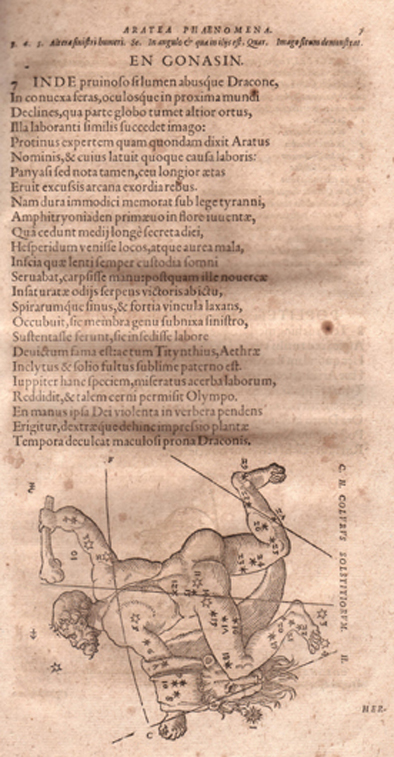 ARATEA PHAENOMENA.
3. 4. 5. Altera sinistri humeri. Se. In angulo & qua in ilys est. Quar. Imago situm demonstrat.
EN GONASIN.
7 INDE pruinoso si lumen abusque Dracone,
In conuexa feras, oculosque in proxima mundi
Declines, qua parte globo tumet altior ortus,
Illa laboranti similis succedet imago:
Protinus expertem quam quondam dixit Aratus
Nominis, & cuius latuit quoque causa laboris:
Panyasi sed nota tamen, ceu longior ætas
Eruit excussis arcana exordia rebus.
Nam dura immodici memorat sub lege tyranni,
Amphitryoniaden primæuo in flore iuuentæ,
Qua cedunt medij longè secreta diei,
Hesperidum venisse locos, atque aurea mala,
Inscia quæ lenti semper custodia somni
Seruabat, carpsisse manu: postquam ille nouercæ
Insaturatæ odijs serpens victoris ab ictu,
Spirarumque sinus, & fortia vincula laxans,
Occubuit, sic membra genu subnixa sinistro,
Sustentasse ferunt, sic insedisse labore
Deuictum fama est: at tum Titynthius, Aethræ
Inclytus & solio fultus sublime paterno est.
Iuppiter hanc speciem, miseratus acerba laborum,
Reddidit, & talem cerni permisit Olympo.
En manus ipsa Dei violenta in verbera pendens
Erigitur, dextræque dehinc impressio plantæ
Tempora deculcat maculosi prona Draconis.
C. H. COLVRVS SOLSTITIORVM. H.
HER-